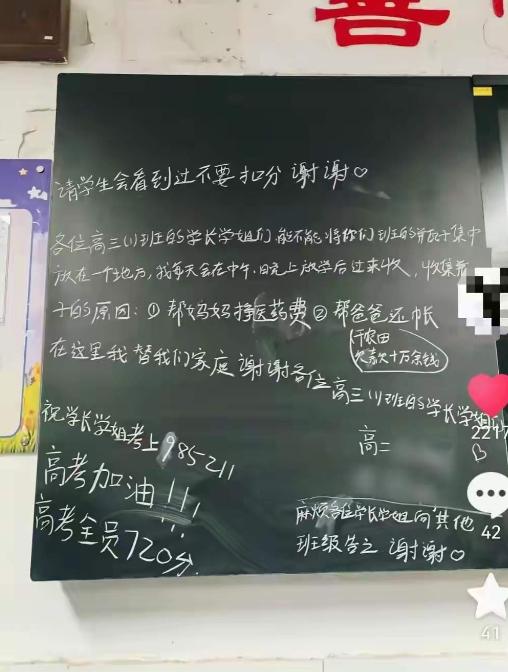 善
请学生会看到过不要扣分 谢谢♡
各位高三(1)班的学长学姐们 能不能将你们班的并瓦子集中
放在一个地方,我每天会在中午、晚上放学后过来收,收集并瓦
子的原因:① 帮妈妈挣医药费 ② 帮爸爸还帐
干农田
欠款十万余钱
在这里我替我们家庭谢谢各位高三(1)班的学长学姐们
高二
祝学长学姐考上985211
高考加油!!!
高考全员720分
麻烦各位学长学姐向其他
班级告之 谢谢♡
2217
42
41